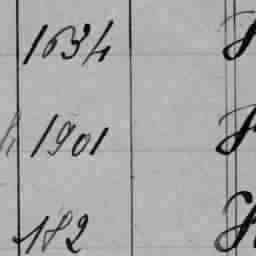 1634
1901
182